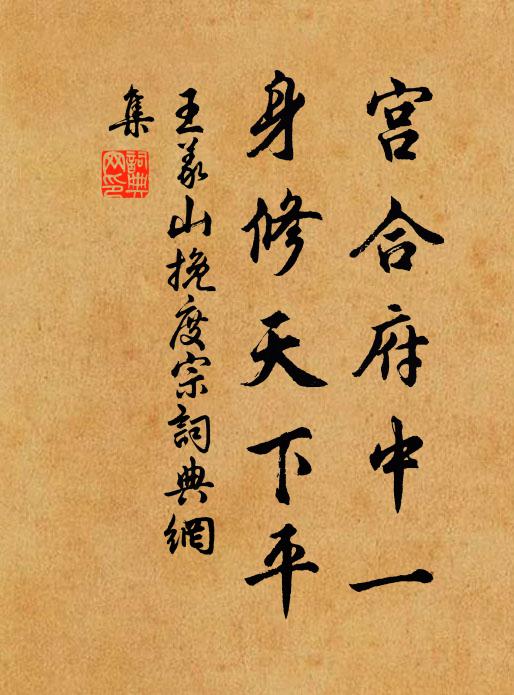 宫合府中一
身修天下平
王义山挽度宗詞典網
集
詞典
网印